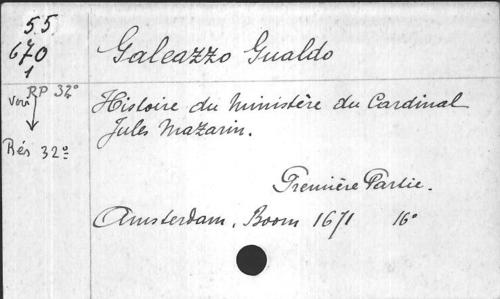 55
670
1
Galeazzo Gualdo
RP 32°
voir
Histoire du Ministère du Cardinal
Jules Mazarin.
Rés 32°
Première Partie.
Amsterdam, Boom 1671 16°